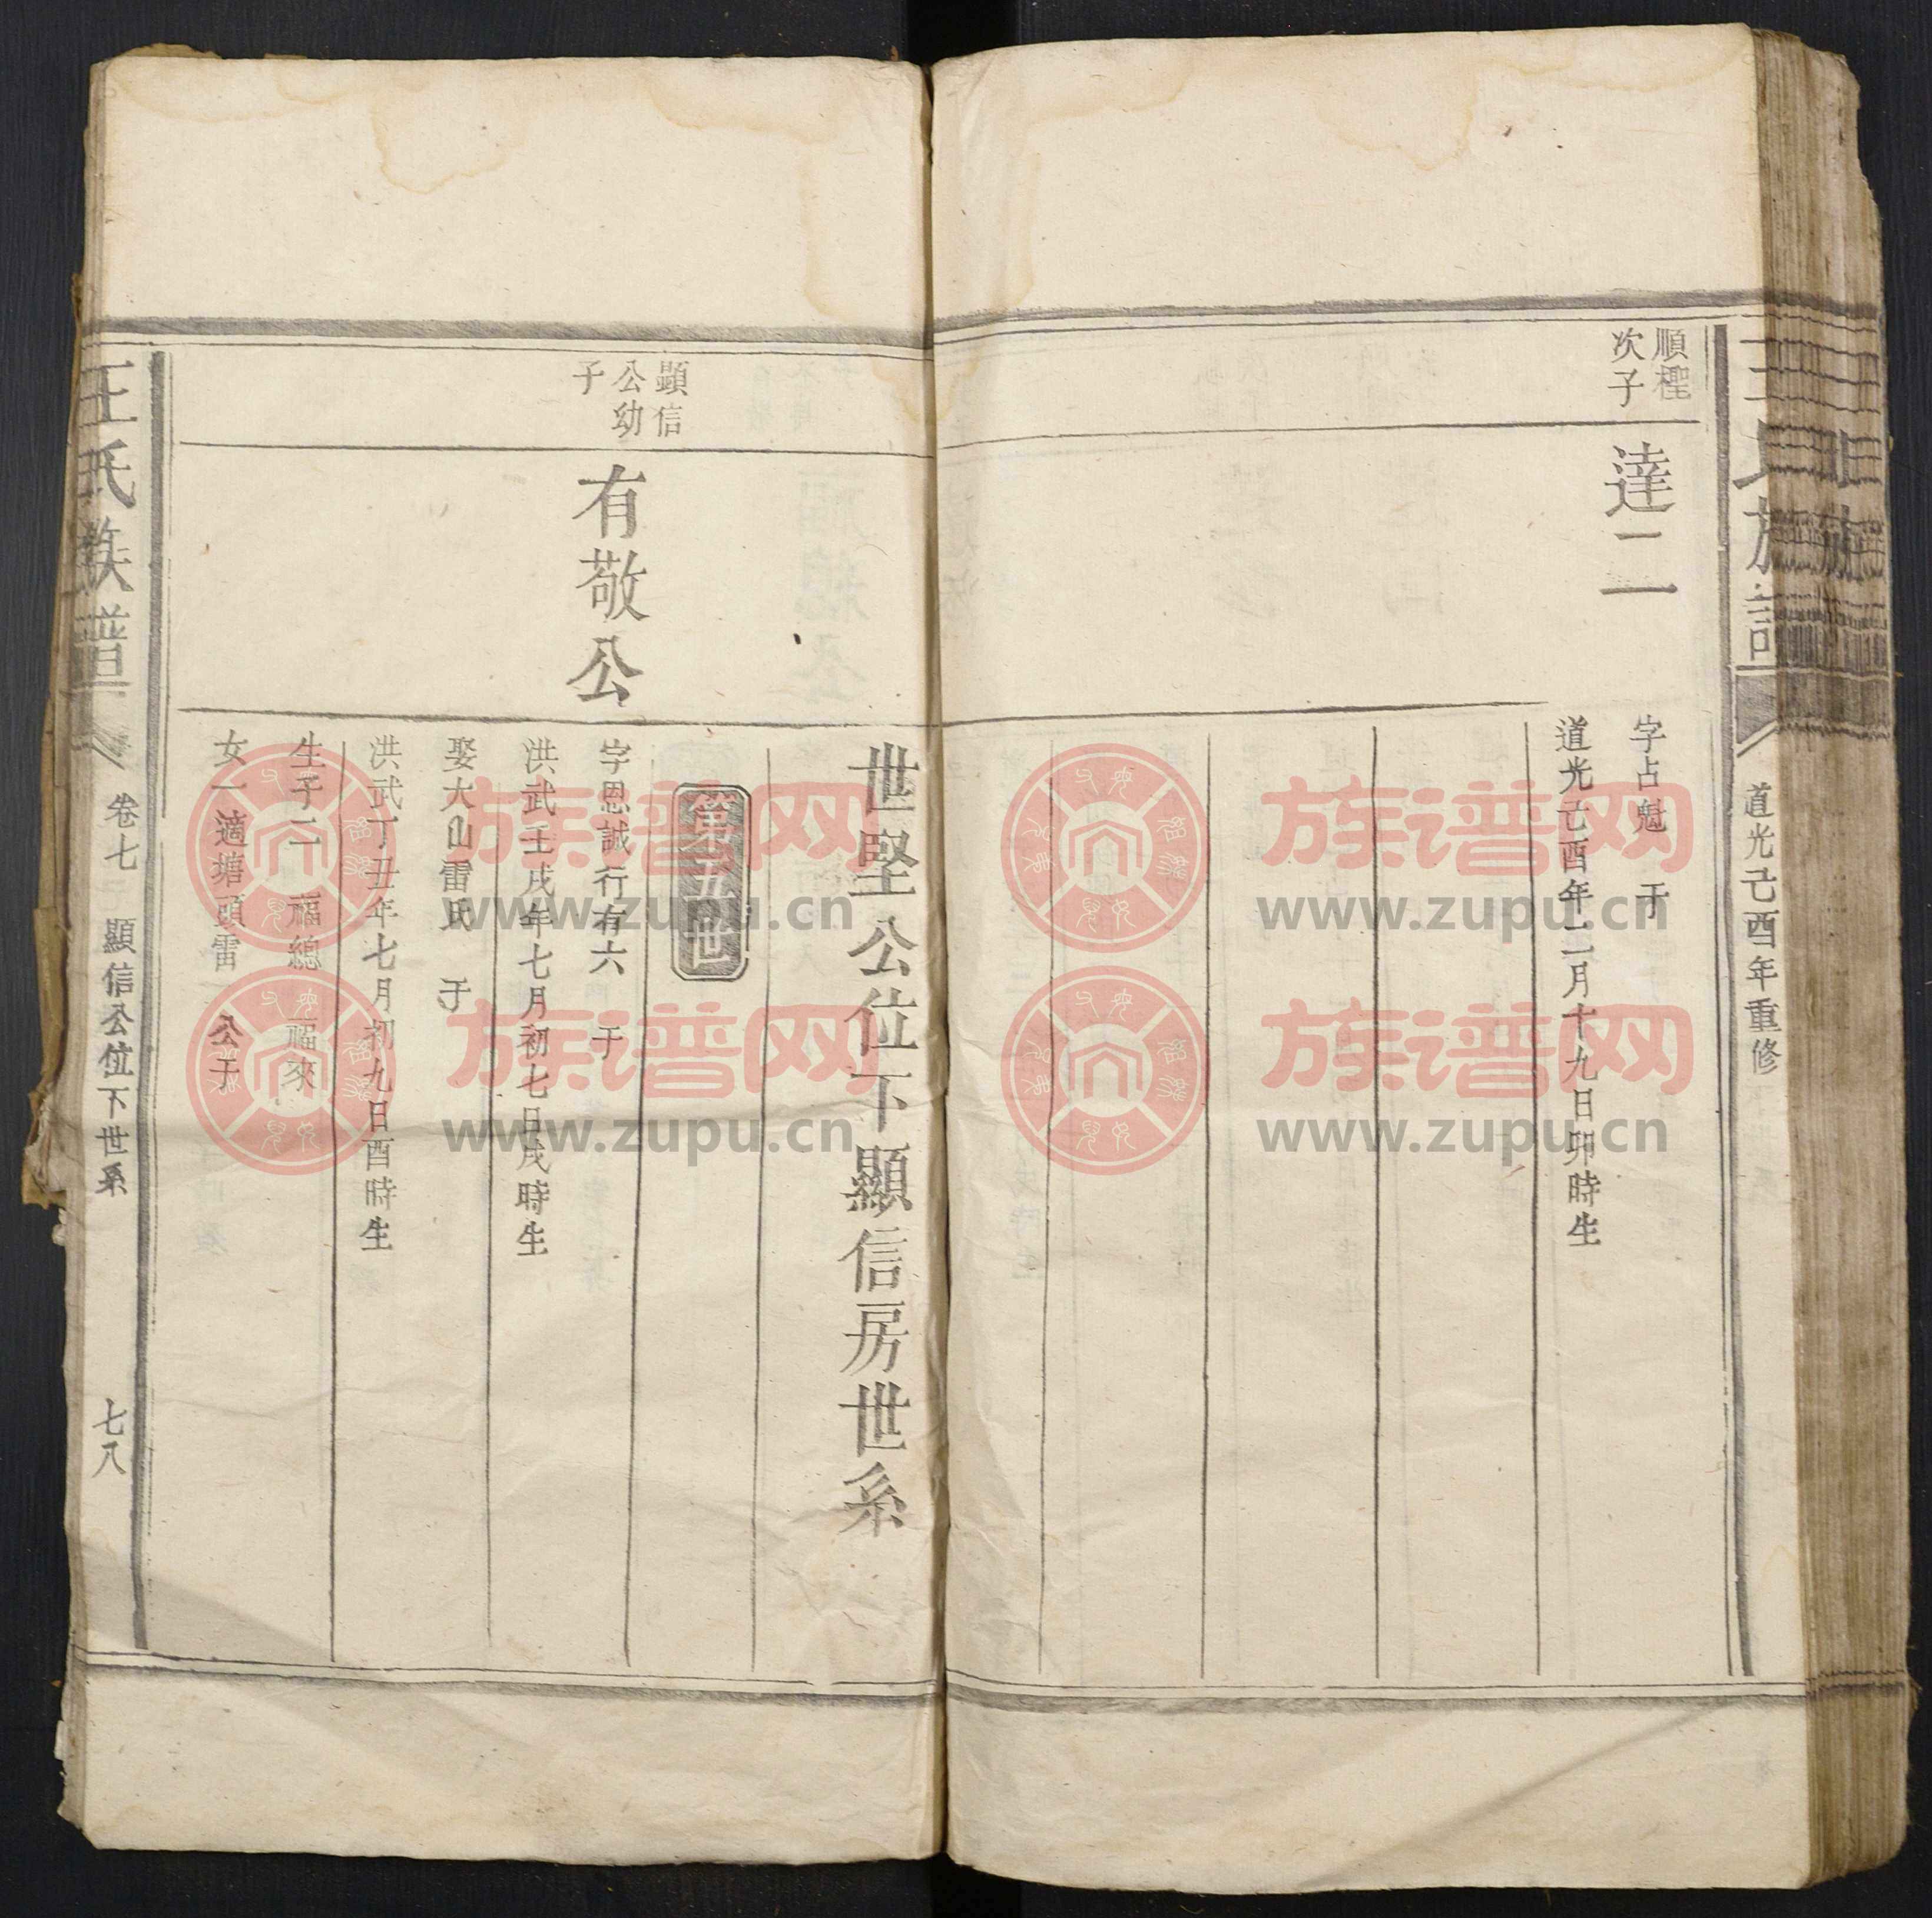 道光己酉年重修
順桱
次子
達二
字占魁 于
道光己酉年二月十九日卯時生
世堅公位下顯信房世系
第五世
顯信
公幼
子
有敬公
字恩誠行有六 于
洪武壬戌年七月初七日戌時生
娶大山雷氏 于
洪武丁丑年七月初九日酉時生
生子二 福總 福來
女一適塘頭雷 公于
王氏族譜
卷七 顯信公位下世系
七八
族谱网
www.zupu.cn
族谱网
www.zupu.cn
族谱网
www.zupu.cn
族谱网
www.zupu.cn